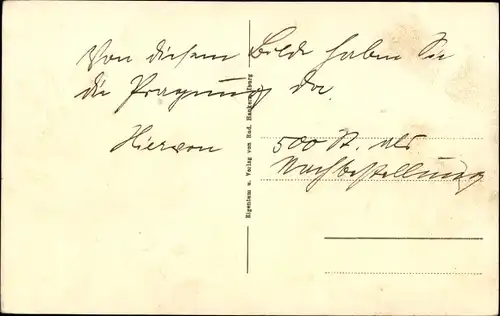 Von diesem Bilde haben Sie
die Prägung da.
Hiervon 500 St. als
Nachbestellung
Eigentum u. Verlag von Rud.